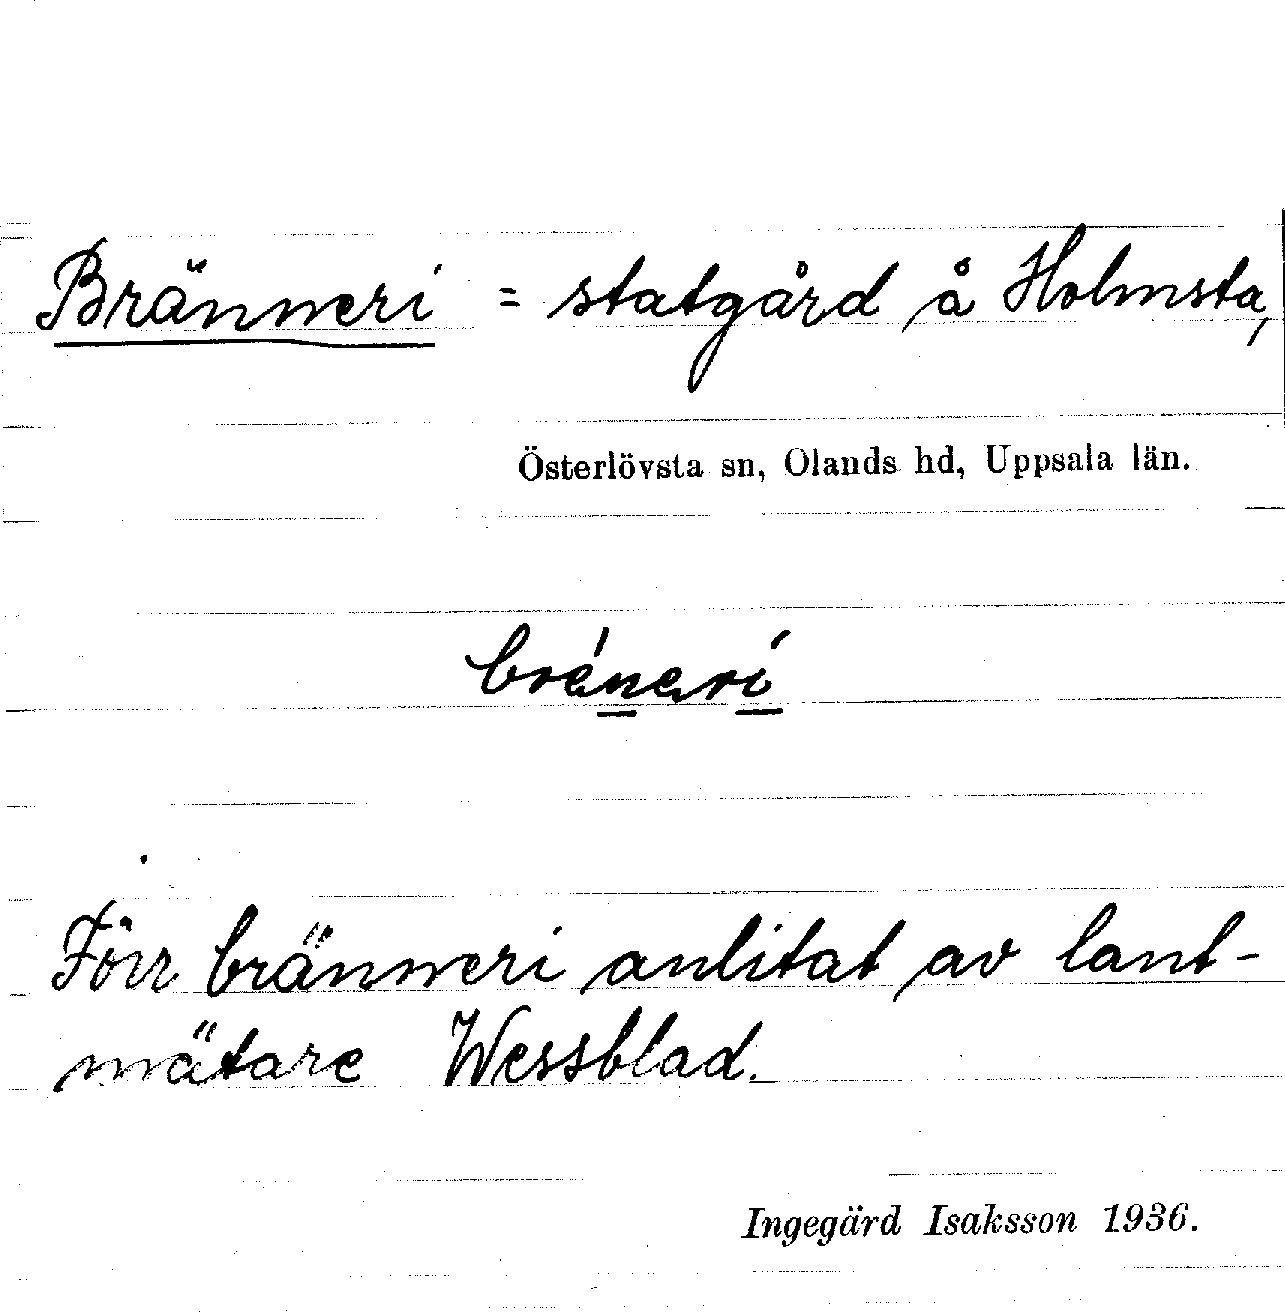 Bränneri = statgård å Holmsta,
Österlövsta sn, Olands hd, Uppsala län.
bréneri
Förr bränneri anlitat av lant-
mätare Wessblad.
Ingegärd Isaksson 1936.